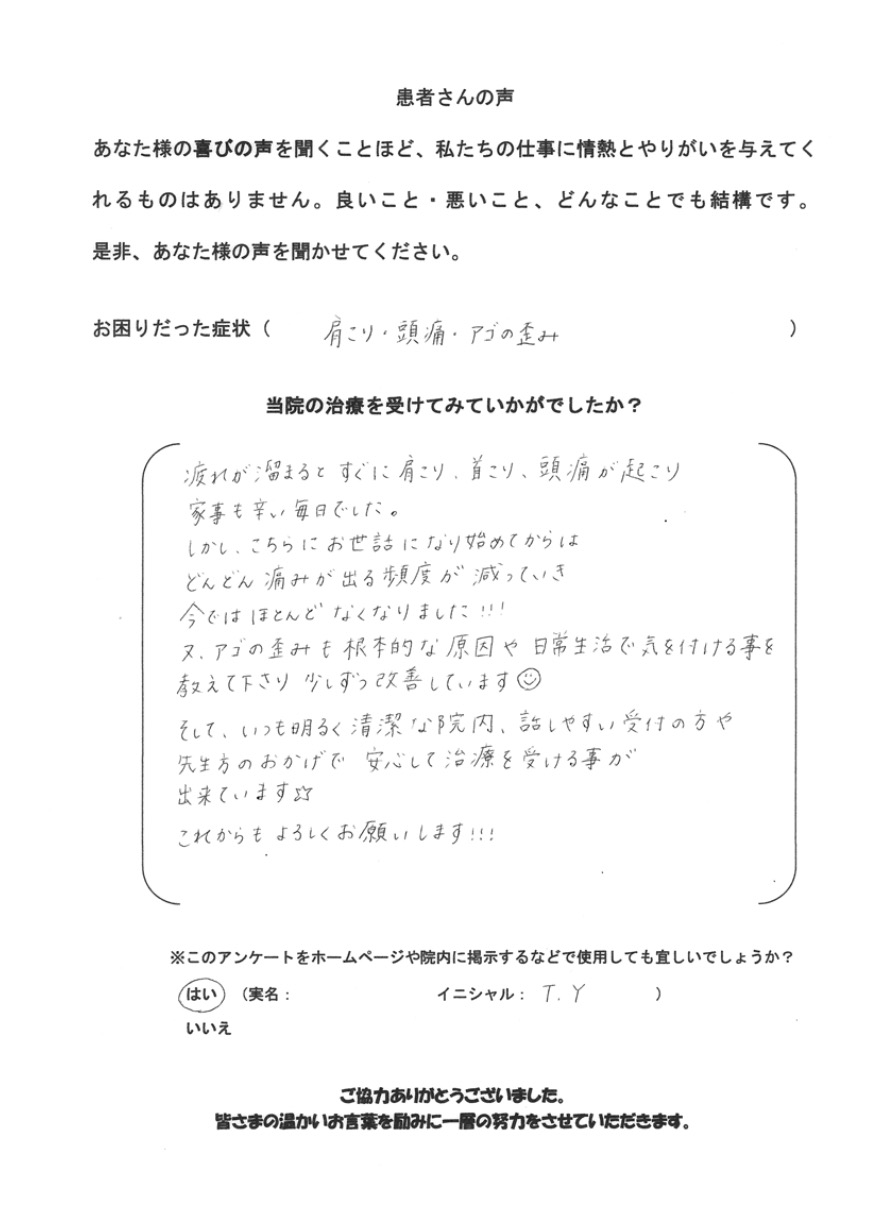 患者さんの声
あなた様の喜びの声を聞くことほど、私たちの仕事に情熱とやりがいを与えてく
れるものはありません。良いこと・悪いこと、どんなことでも結構です。
是非、あなた様の声を聞かせてください。
お困りだった症状（　肩こり・頭痛・アゴの歪み　）
当院の治療を受けてみていかがでしたか？
疲れが溜まると すぐに肩こり、首こり、頭痛が起こり
家事も辛い毎日でした。
しかし、こちらにお世話になり始めてからは
どんどん痛みが出る頻度が減っていき
今ではほとんどなくなりました!!!
又、アゴの歪みも根本的な原因や日常生活で気を付ける事を
教えて下さり 少しずつ改善しています☺
そして、いつも明るく清潔な院内、話しやすい受付の方や
先生方のおかげで 安心して治療を受ける事が
出来ています☆
これからもよろしくお願いします!!!
※このアンケートをホームページや院内に掲示するなどで使用しても宜しいでしょうか？
はい （実名：　イニシャル： T.Y ）
いいえ
ご協力ありがとうございました。
皆さまの温かいお言葉を励みに一層の努力をさせていただきます。